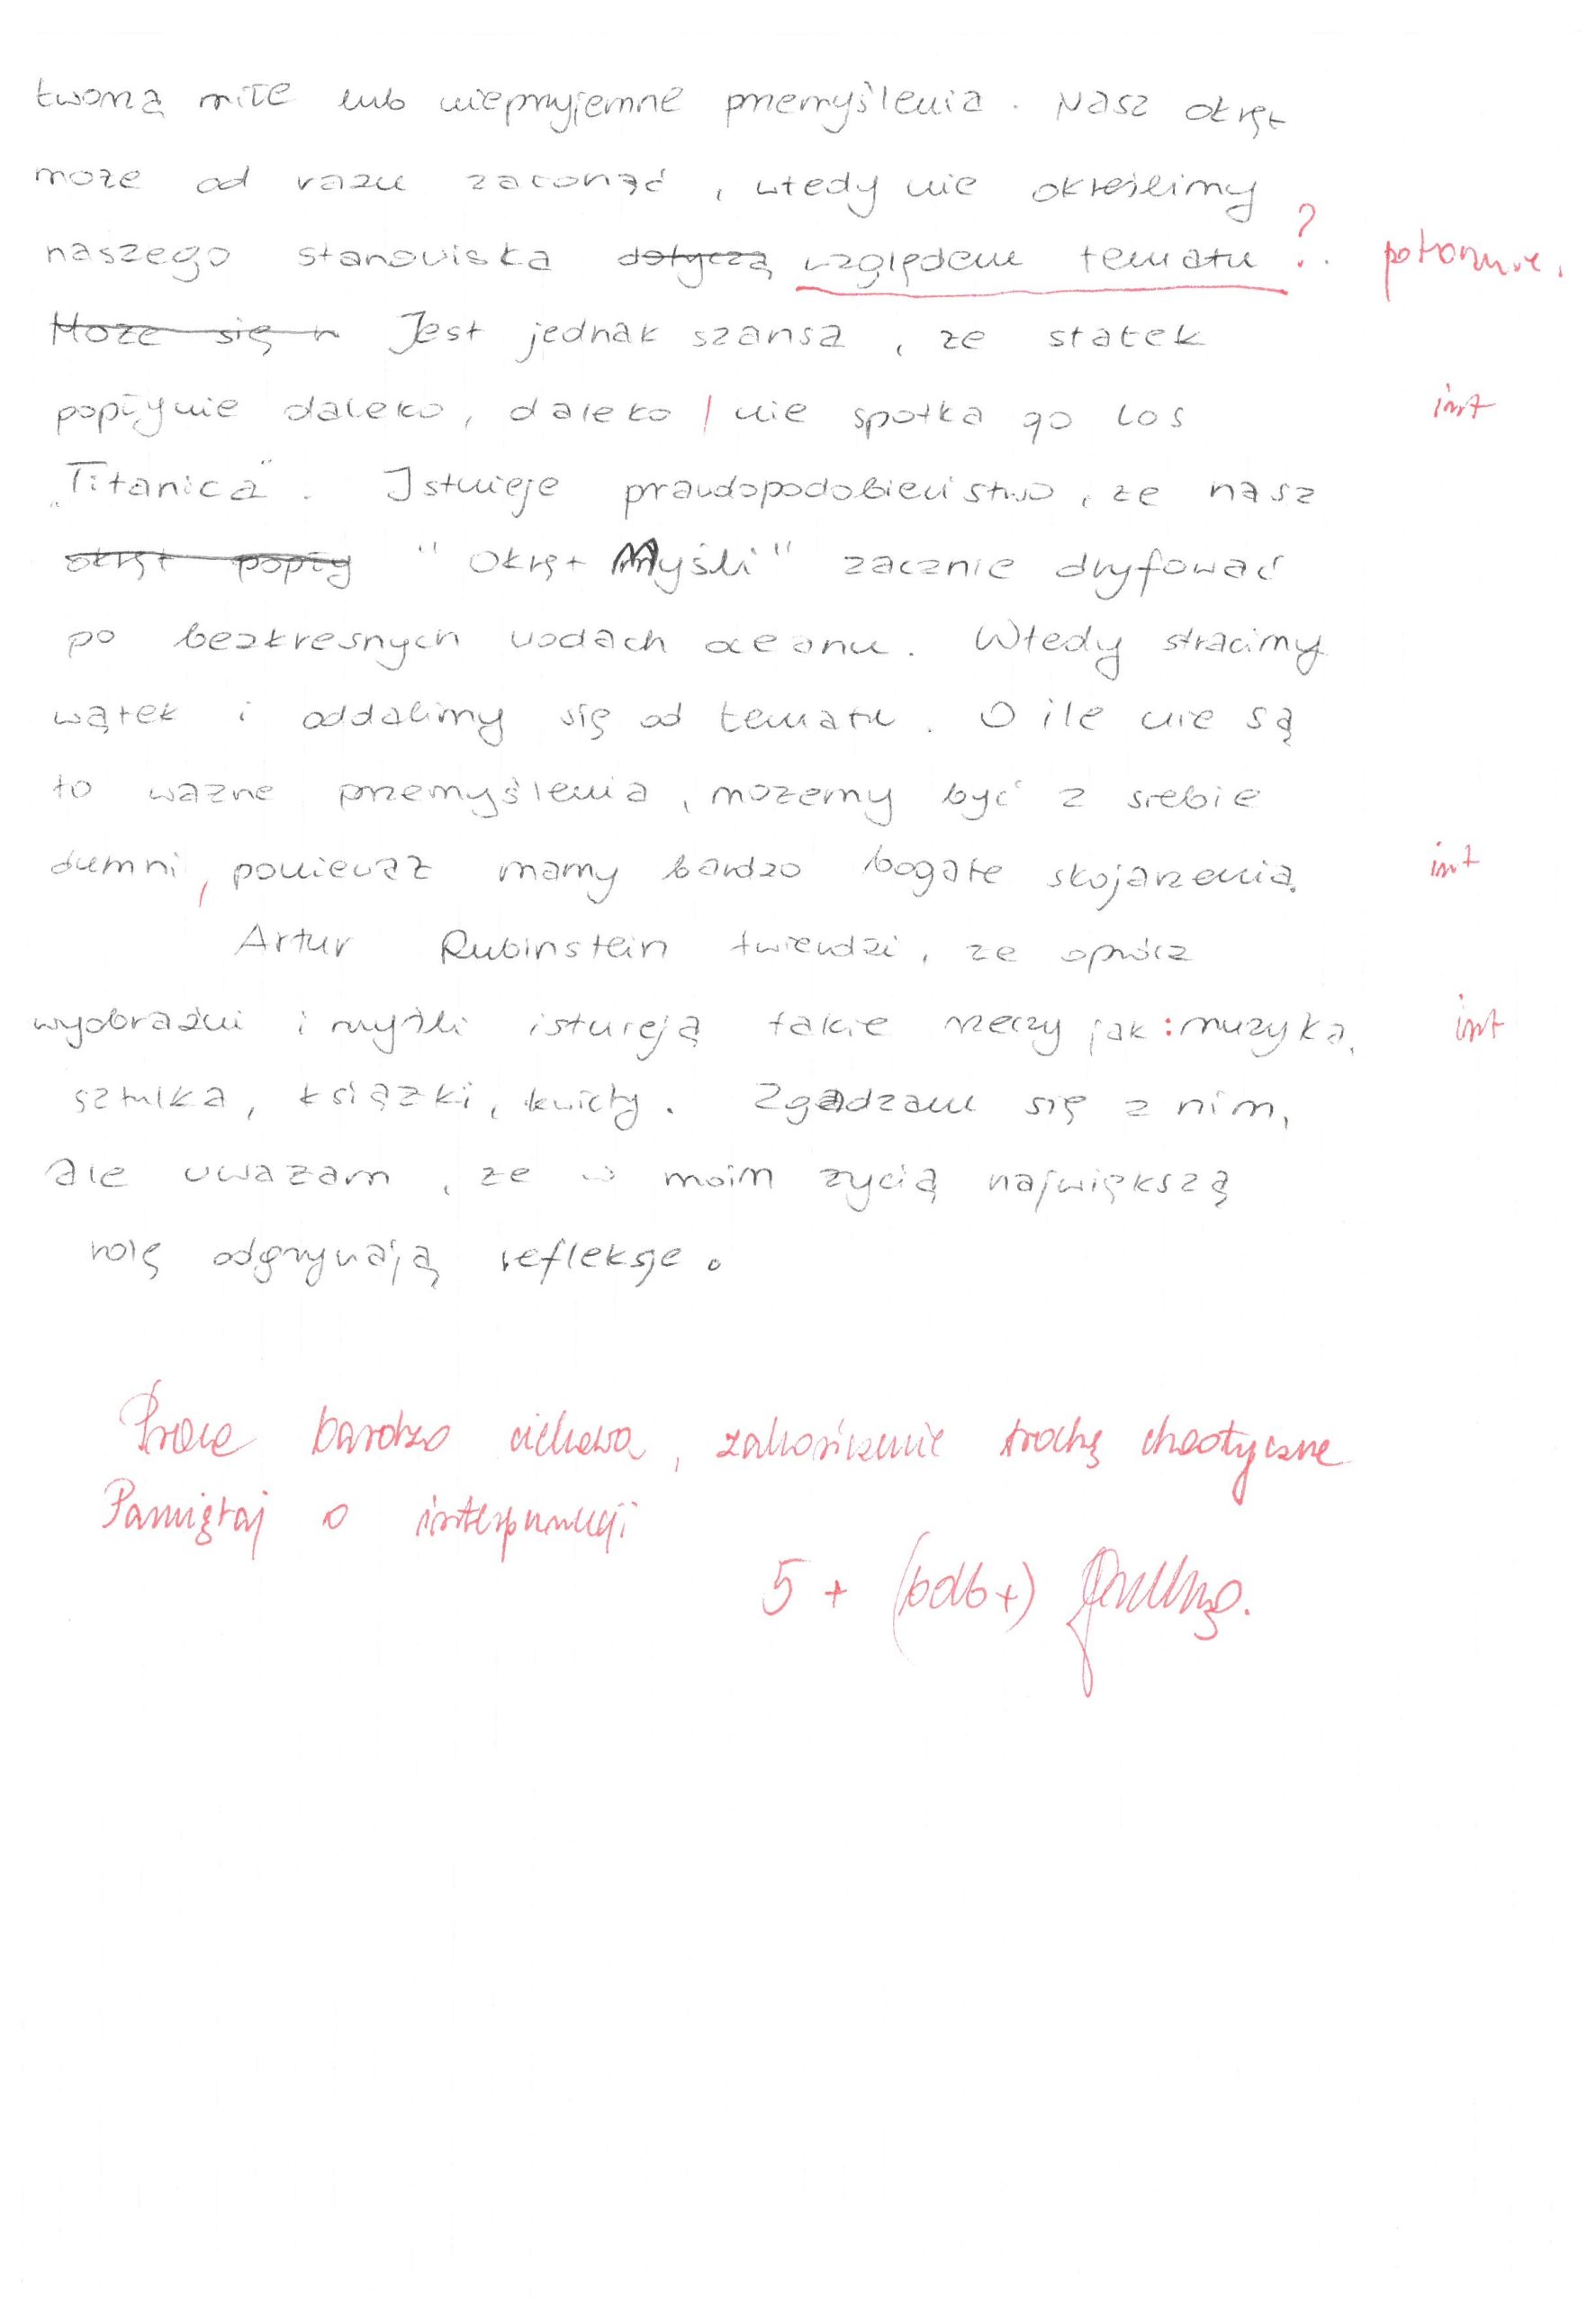 tworzą miłe lub nieprzyjemne przemyślenia. Nasz okręt
może od razu zatonąć, wtedy nie określimy
naszego stanowiska dotyczą względem tematu ?.
Może się n Jest jednak szansa, że statek
popłynie daleko, daleko | nie spotka go los int
„Titanica". Istnieje prawdopodobieństwo, że nasz
okręt popły "Okręt Myśli" zacznie dryfować
po bezkresnych wodach oceanu. Wtedy stracimy
wątek i oddalimy się od tematu. O ile nie są
to ważne przemyślenia, możemy być z siebie
dumni, ponieważ mamy bardzo bogate skojarzenia. int
Artur Rubinstein twierdzi, że oprócz
wyobraźni i myśli istnieją takie rzeczy jak: muzyka, int
sztuka, książki, kwiaty. Zgadzam się z nim,
ale uważam, że w moim życią największą
rolę odgrywają refleksje.
Praca bardzo ciekawa, zakończenie trochę chaotyczne
Pamiętaj o interpunkcji
5+ (bdb+)